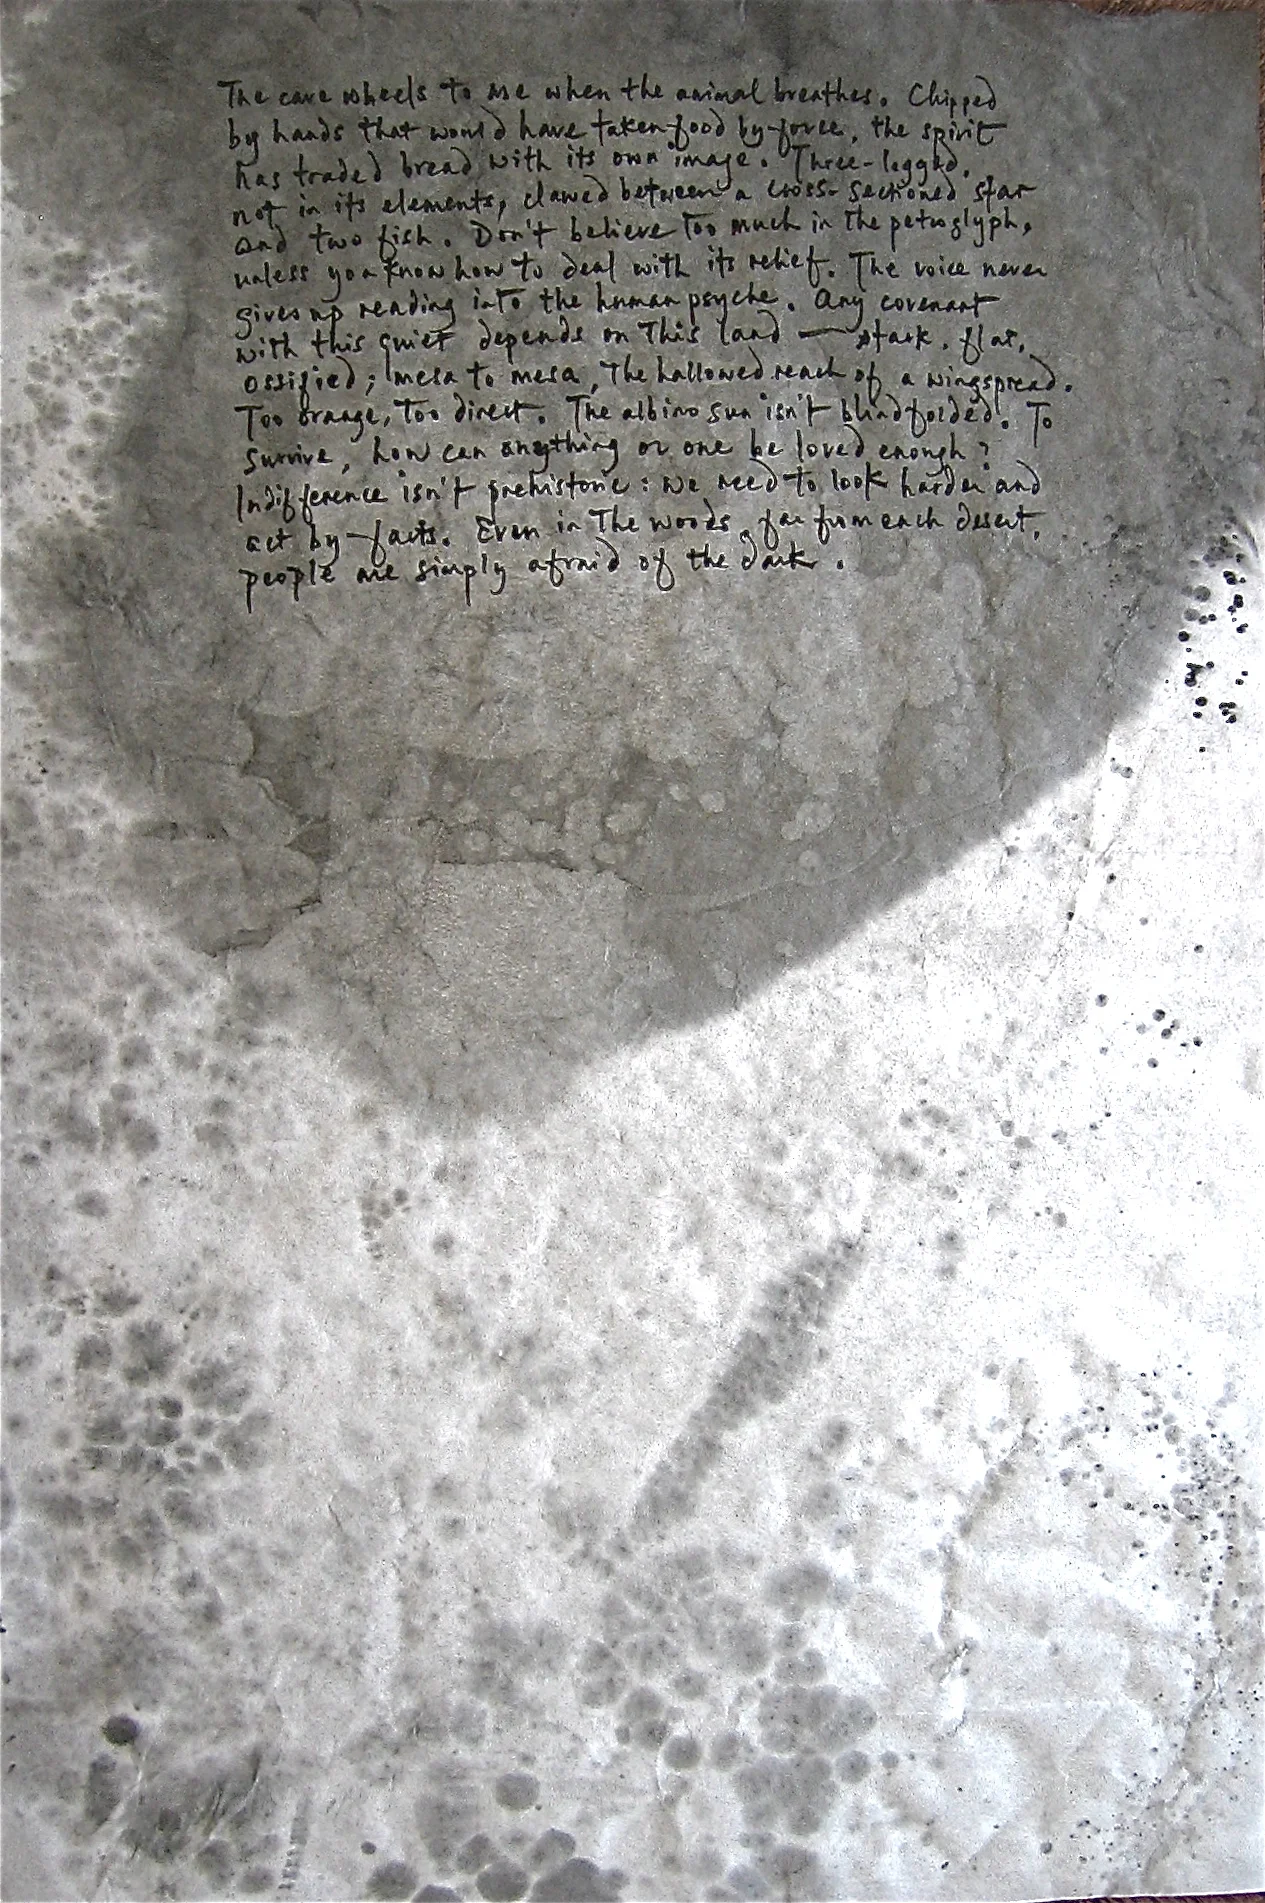 The cave wheels to me when the animal breathes. Chipped
by hands that would have taken food by force, the spirit
has traded bread with its own image. Three-legged,
not in its elements, clawed between a cross-sectioned star
and two fish. Don't believe too much in the petroglyph,
unless you know how to deal with its relief. The voice never
gives up reading into the human psyche. Any covenant
with this quiet depends on this land — stark, flat,
ossified; mesa to mesa, the hallowed reach of a wingspread.
Too orange, too direct. The albino sun isn't blindfolded. To
survive, how can anything or one be loved enough?
Indifference isn't prehistoric: we need to look harder and
act by facts. Even in the woods, far from each desert,
people are simply afraid of the dark.